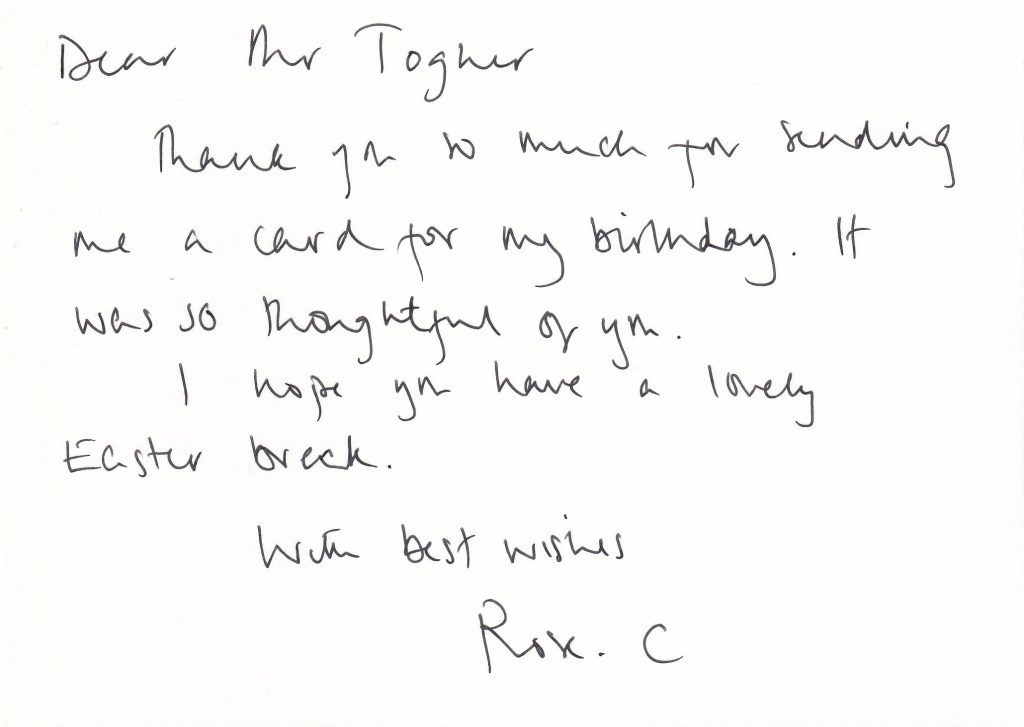 Dear Mr Togher
Thank you so much for sending
me a card for my birthday. It
was so thoughtful of you.
I hope you have a lovely
Easter break.
With best wishes
Rose. C